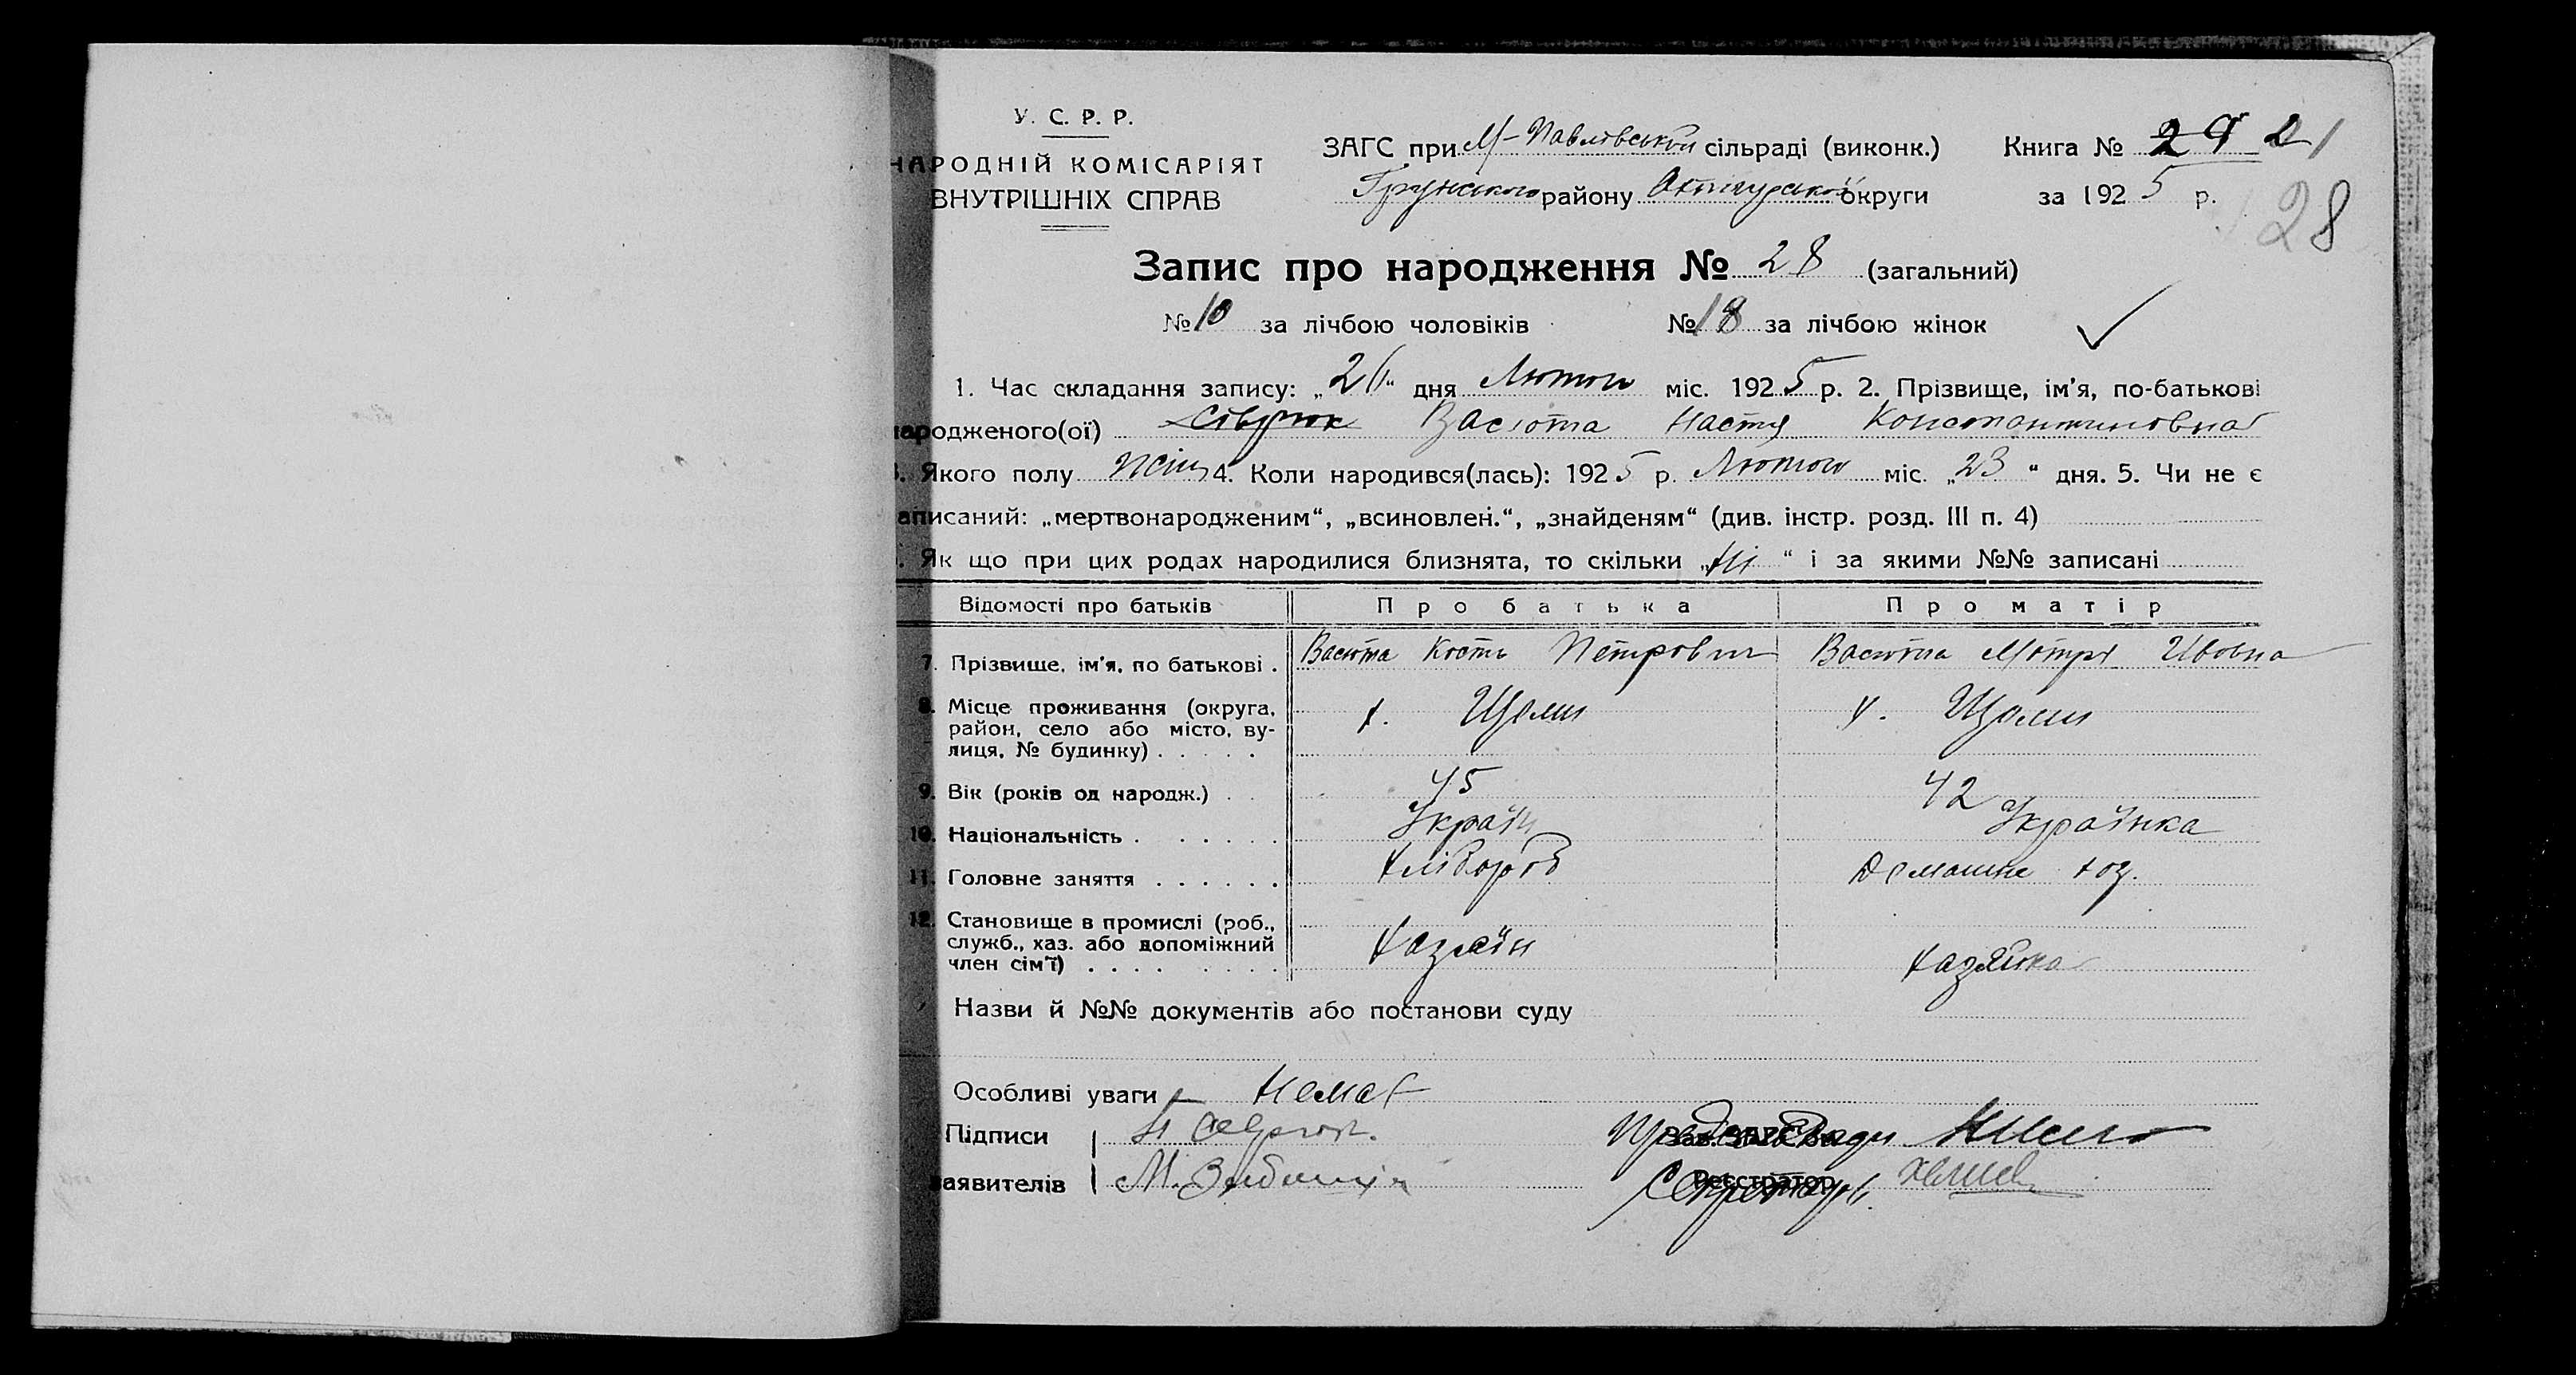 У. С. Р. Р.
НАРОДНІЙ КОМІСАРІЯТ
ВНУТРІШНІХ СПРАВ
ЗАГС при М-Павлівській сільраді (виконк.) Книга № 29 21
Грунського району Охтирської округи за 1925 р.
28
Запис про народження № 28 (загальний)
№ 10 за лічбою чоловіків № 18 за лічбою жінок
1. Час складання запису: „26“ дня Лютого міс. 1925 р. 2. Прізвище, ім'я, по-батькові
народженого(ої) Сіврюк Васюта Настя Константиновна
3. Якого полу жін 4. Коли народився(лась): 1925 р. Лютого міс. „23“ дня. 5. Чи не є
записаний: „мертвонародженим“, „всиновлен.“, „знайденям“ (див. інстр. розд. III п. 4)
Як що при цих родах народилися близнята, то скільки „Ні“ і за якими №№ записані
Відомості про батьків Про батька Про матір
7. Прізвище, ім'я, по батькові . Васюта Кость Петрович Васюта Мотря Івовна
8. Місце проживання (округа,
район, село або місто, ву-
лиця, № будинку) . . . . . х. Щоми х. Щоми
9. Вік (років од народж.) . . 45 42
10. Національність . . . . . . Україн Українка
11. Головне заняття . . . . . . Хлібороб Домашнє хоз.
12. Становище в промислі (роб.,
служб., хаз. або допоміжний
член сім'ї) . . . . . . . . Хазяїн Хазяйка
Назви й №№ документів або постанови суду
Особливі уваги Немає
Підписи
заявителів М.
Зав. ЗАГС'ом
Реєстратор Секретарь